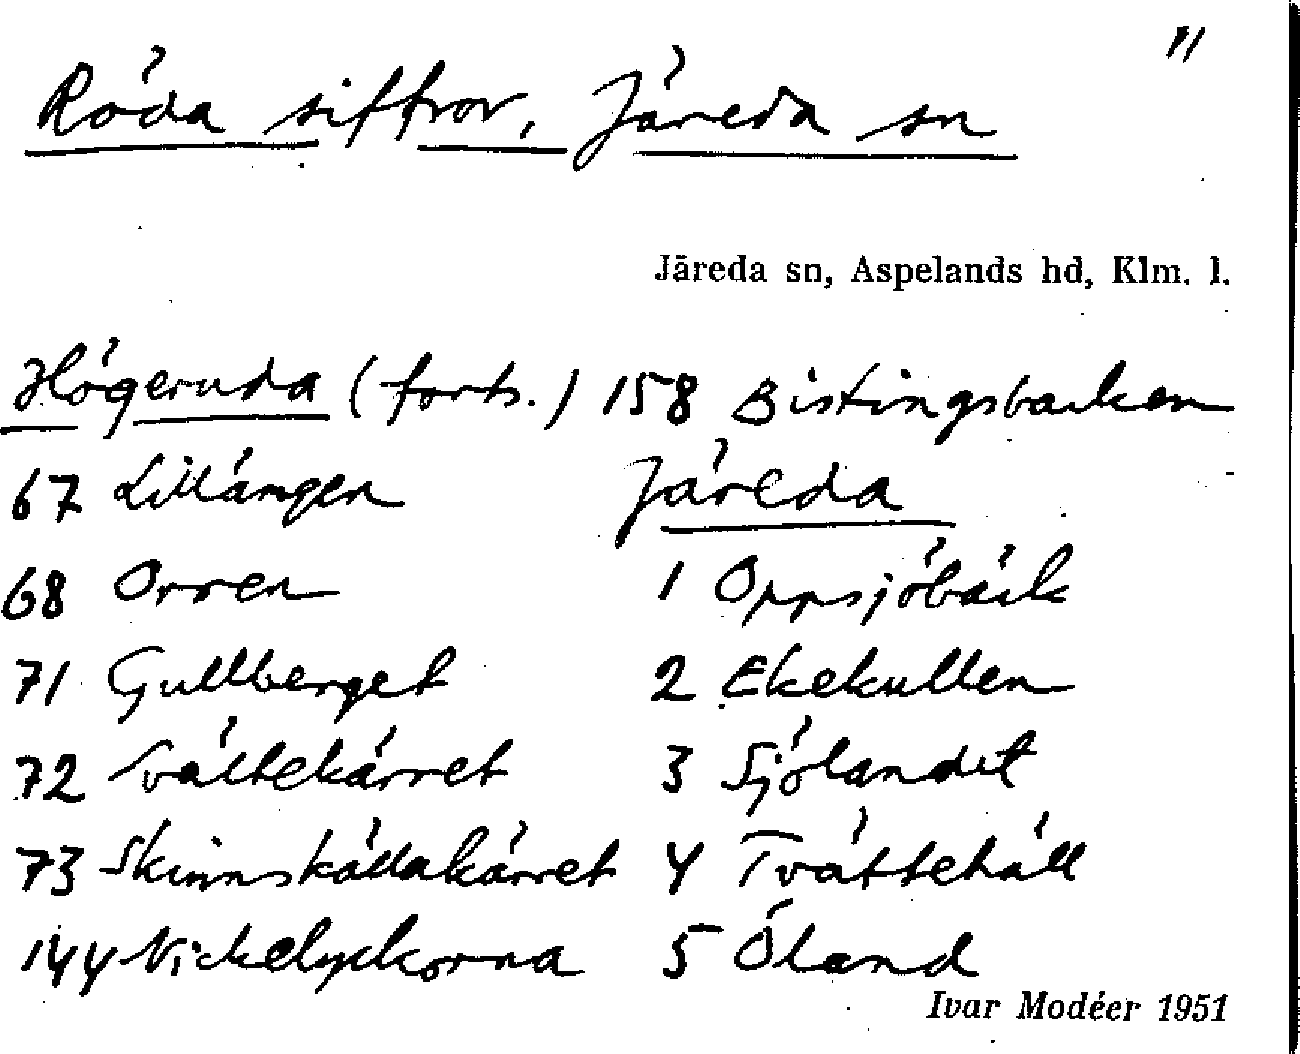 "
Röda siffror, Järeda sn
Järeda sn, Aspelands hd, Klm. l.
Högeruda (forts.)
67 Lillängen
68 Orren
71 Gullberget
72 Svältekärret
73 Skinnskädakärret
144 Nickelyckorna
158 Bistingsbacken
Järeda
1 Oppsjöbäck
2 Ekekullen
3 Sjölandet
4 Tvättehäll
5 Öland
Ivar Modéer 1951